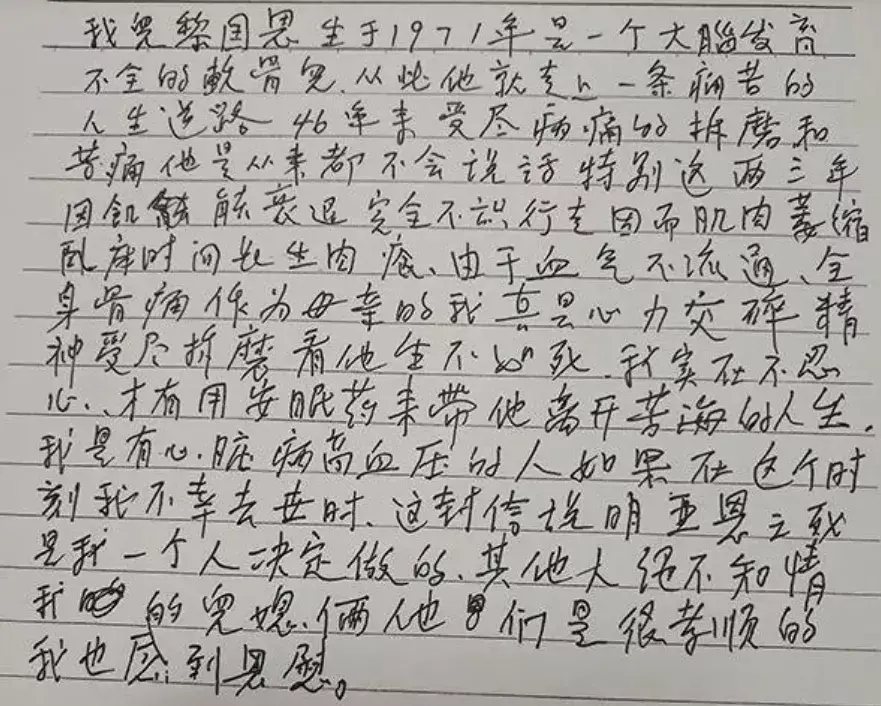 我兒黎国恩生于1971年是一个大腦发育
不全的軟骨兒.从此他就走上一条痛苦的
人生道路46年来受尽病痛的折磨和
苦痛他是从来都不会说话特别这两三年
因飢能衰退完全不识行走因而肌肉萎缩
臥床时间长生肉痕、由于血气不流通、全
身骨痛作为母亲的我真是心力交碎精
神受尽折磨看他生不如死.我实在不忍
心、才有用安眠药来带他离开苦海的人生.
我是有心.脏病高血压的人如果在这个时
刻我不幸去世时、这封信说明亚恩之死
是我一个人决定做的、其他人绝不知情
我的兒媳.俩他们是很孝顺的
我也感到恩慰。